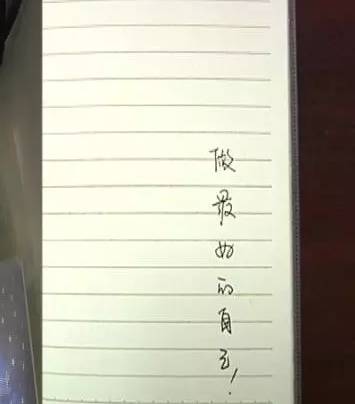 做最好的自己！